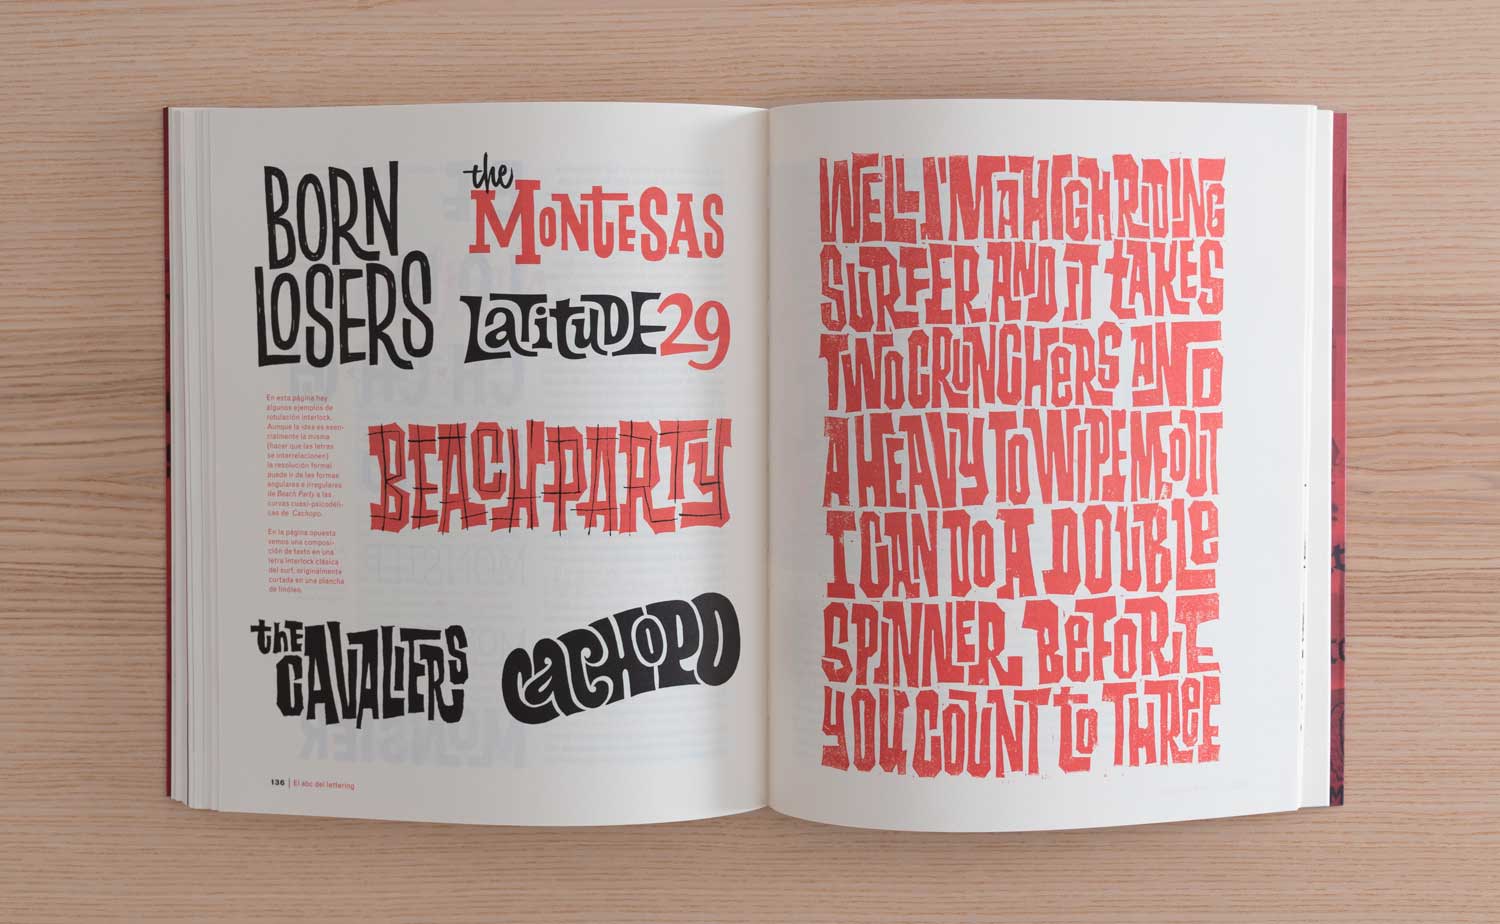 BORN
LOSERS
the
MONTESAS
LATITUDE 29
En esta página hay
algunos ejemplos de
rotulación interlock.
Aunque la idea es esen-
cialmente la misma
(hacer que las letras
se interrelacionen)
la resolución formal
puede ir de las formas
angulares e irregulares
de Beach Party a las
curvas cuasi-psicodéli-
cas de Cachopo.
En la página opuesta
vemos una composi-
ción de texto en una
letra interlock clásica
del surf, originalmente
cortada en una plancha
de linóleo.
BEACH PARTY
the
CAVALIERS
CACHOPO
136 | El abc del lettering
WELL I'M A HIGH RIDING
SURFER AND IT TAKES
TWO CRUNCHERS AND
A HEAVY TO WIPE M OUT
I CAN DO A DOUBLE
SPINNER BEFORE
YOU COUNT TO THREE